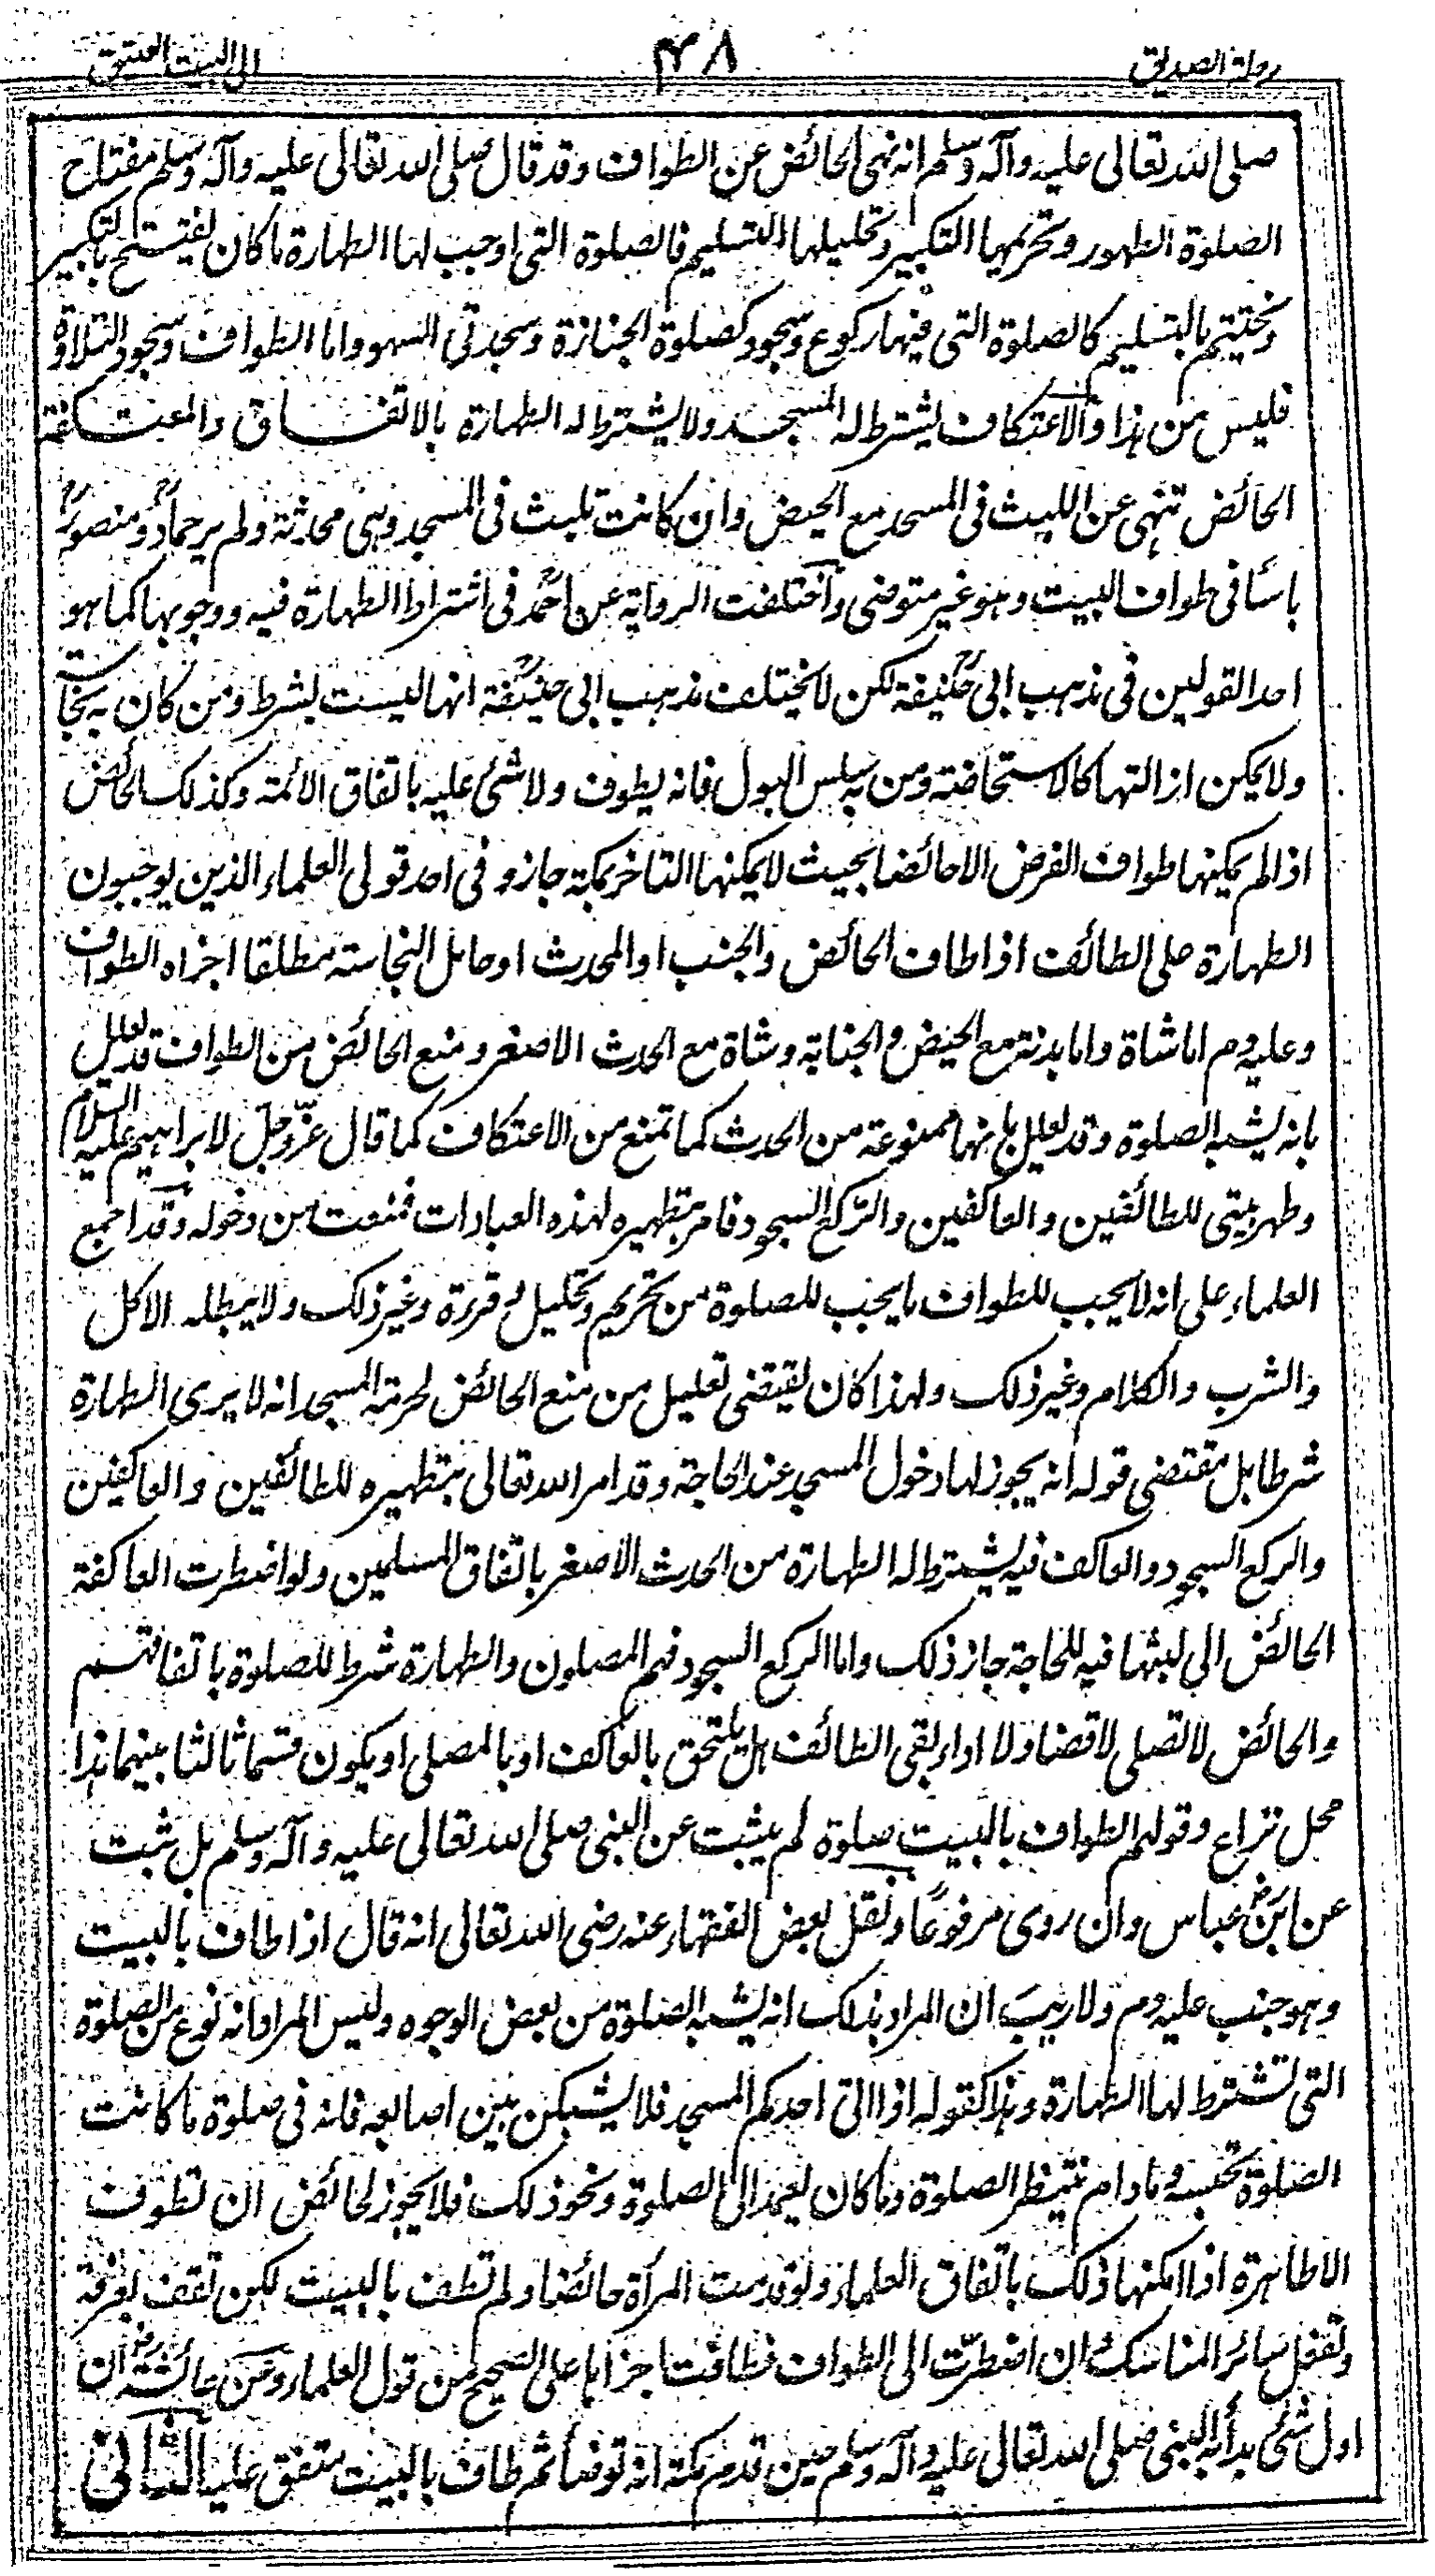 رحلة الصديق
٤٨
الى البيت العتيق
صلى الله تعالى عليه وآله وسلم انه نهى الحائض عن الطواف وقد قال صلى الله تعالى عليه وآله وسلم مفتاح
الصلوة الطهور وتحريمها التكبير وتحليلها التسليم فالصلوة التى اوجب لها الطهارة ما كان يفتتح بالتكبير
ويختتم بالتسليم كالصلوة التى فيها ركوع وسجود كصلوة الجنازة وسجدتى السهو واما الطواف وسجود التلاوة
فليس من هذا والاعتكاف يشترط له المسجد ولا يشترط له الطهارة بالاتفاق والمعتكفة
الحائض تنهى عن اللبث فى المسجد مع الحيض وان كانت تلبث فى المسجد وهى محدثة ولم ير حماد ومنصور
باسًا فى طواف البيت وهو غير متوضى واختلفت الرواية عن احمد فى اشتراط الطهارة فيه ووجوبها كما هو
احد القولين فى مذهب ابى حنيفة لكن لا يختلف مذهب ابى حنيفة انها ليست بشرط ومن كان به نجاسة
ولا يمكن ازالتها كالاستحاضة ومن به سلس البول فانه يطوف ولا شئ عليه باتفاق الائمة وكذلك الحائض
اذا لم يمكنها طواف الفرض الا حائضا بحيث لا يمكنها التاخر بمكة جاز وفى احد قولى العلماء الذين يوجبون
الطهارة على الطائف اذا طاف الحائض والجنب او المحدث او حامل النجاسة مطلقا اجزاه الطواف
وعليه دم اما شاة واما بدنة مع الحيض والجنابة وشاة مع الحدث الاصغر ومنع الحائض من الطواف قد يعلل
بانه يشبه الصلوة وقد يعلل بانها ممنوعة من الحدث كما تمنع من الاعتكاف كما قال عزّ وجلّ لابراهيم عليه السلام
وطهر بيتى للطائفين والعاكفين والرّكع السجود فامر بتطهيره لهذه العبادات فمنعت من دخوله وقد اجمع
العلماء على انه لا يجب للطواف ما يجب للصلوة من تحريم وتحليل وقرءة وغير ذلك ولا يبطله الاكل
والشرب والكلام وغير ذلك ولهذا كان يقتضى تعليل من منع الحائض لحرمة المسجد انه لا يرى الطهارة
شرطا بل مقتضى قوله انه يجوز لها دخول المسجد عند الحاجة وقد امر الله تعالى بتطهيره للطائفين والعاكفين
والركع السجود والعاكف فيه يشترط له الطهارة من الحدث الاصغر باتفاق المسلمين ولو اضطرت العاكفة
الحائض الى لبثها فيه للحاجة جاز ذلك واما الركع السجود فهم المصلون والطهارة شرط للصلوة باتفاقهم
والحائض لا تصلى لا قضاء ولا اداء بقى الطائف هل يلتحق بالعاكف او بالمصلى او يكون قسما ثالثا بينهما هذا
محل نزاع وقولهم الطواف بالبيت صلوة لم يثبت عن النبى صلى الله تعالى عليه وآله وسلم بل ثبت
عن ابن عباس وان روى مرفوعًا ونقل بعض الفقهاء عنه رضى الله تعالى انه قال اذا طاف بالبيت
وهو جنب عليه دم ولا ريب ان المراد بذلك انه يشبه الصلوة من بعض الوجوه وليس المراد انه نوع من الصلوة
التى تشترط لها الطهارة وهذا كقوله اذا اتى احدكم المسجد فلا يشبكن بين اصابعه فانه فى صلوة ما كانت
الصلوة تحبسه وما دام ينتظر الصلوة وما كان يعمد الى الصلوة ونحو ذلك فلا يجوز لحائض ان تطوف
الا طاهرة اذا امكنها ذلك باتفاق العلماء ولو قدمت المرأة حائضا ولم تطف بالبيت لكن تقف بعرفة
وتفعل سائر المناسك ان اضطرّت الى الطواف فطافت اجزاها على الصحيح من قول العلماء وعن عائشة ان
اول شئ بدأ به النبى صلى الله تعالى عليه وآله وسلم حين قدم مكة انه توضأ ثم طاف بالبيت متفق عليه الثانى